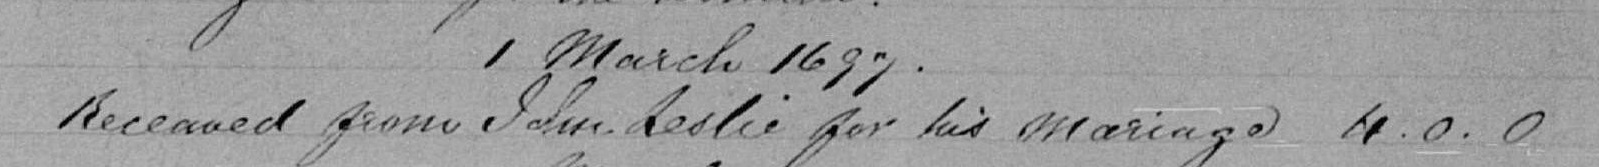 1 March 1697.
Receaved from John Leslie for his Mariage 4.0.0